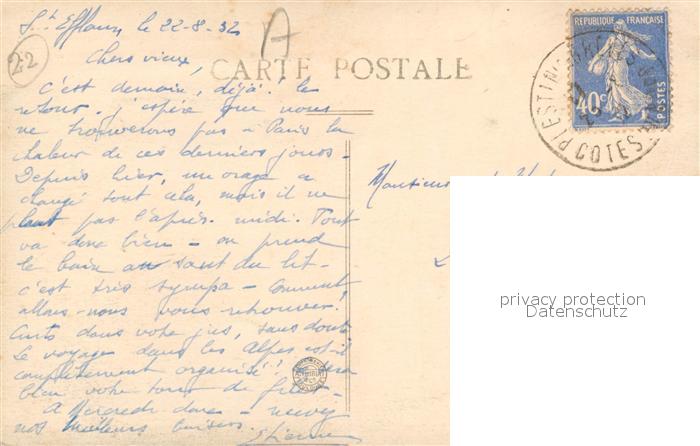 St. Efflam, le 22-8-32
22
A
Chers vieux,
CARTE POSTALE
REPUBLIQUE FRANÇAISE
40c
POSTES
PLESTIN-LES-GRÈVES
COTES DU NORD
C'est demain, déjà! le
retour. j'espère que nous
ne trouverons pas à Paris la
chaleur de ces derniers jours.
Depuis hier, un orage a
changé tout cela, mais il ne
pleut pas l'après-midi. Tout
va donc bien - on prend
le bain au saut du lit -
c'est très sympa - Comment
allons-nous vous retrouver!
Cuits dans votre jus, sans doute
Le voyage dans les Alpes est-il
complètement organisé?
bleu votre tour de
A Mercredi donc -
nos meilleurs baisers.
Etienne
Monsieur
privacy protection
Datenschutz